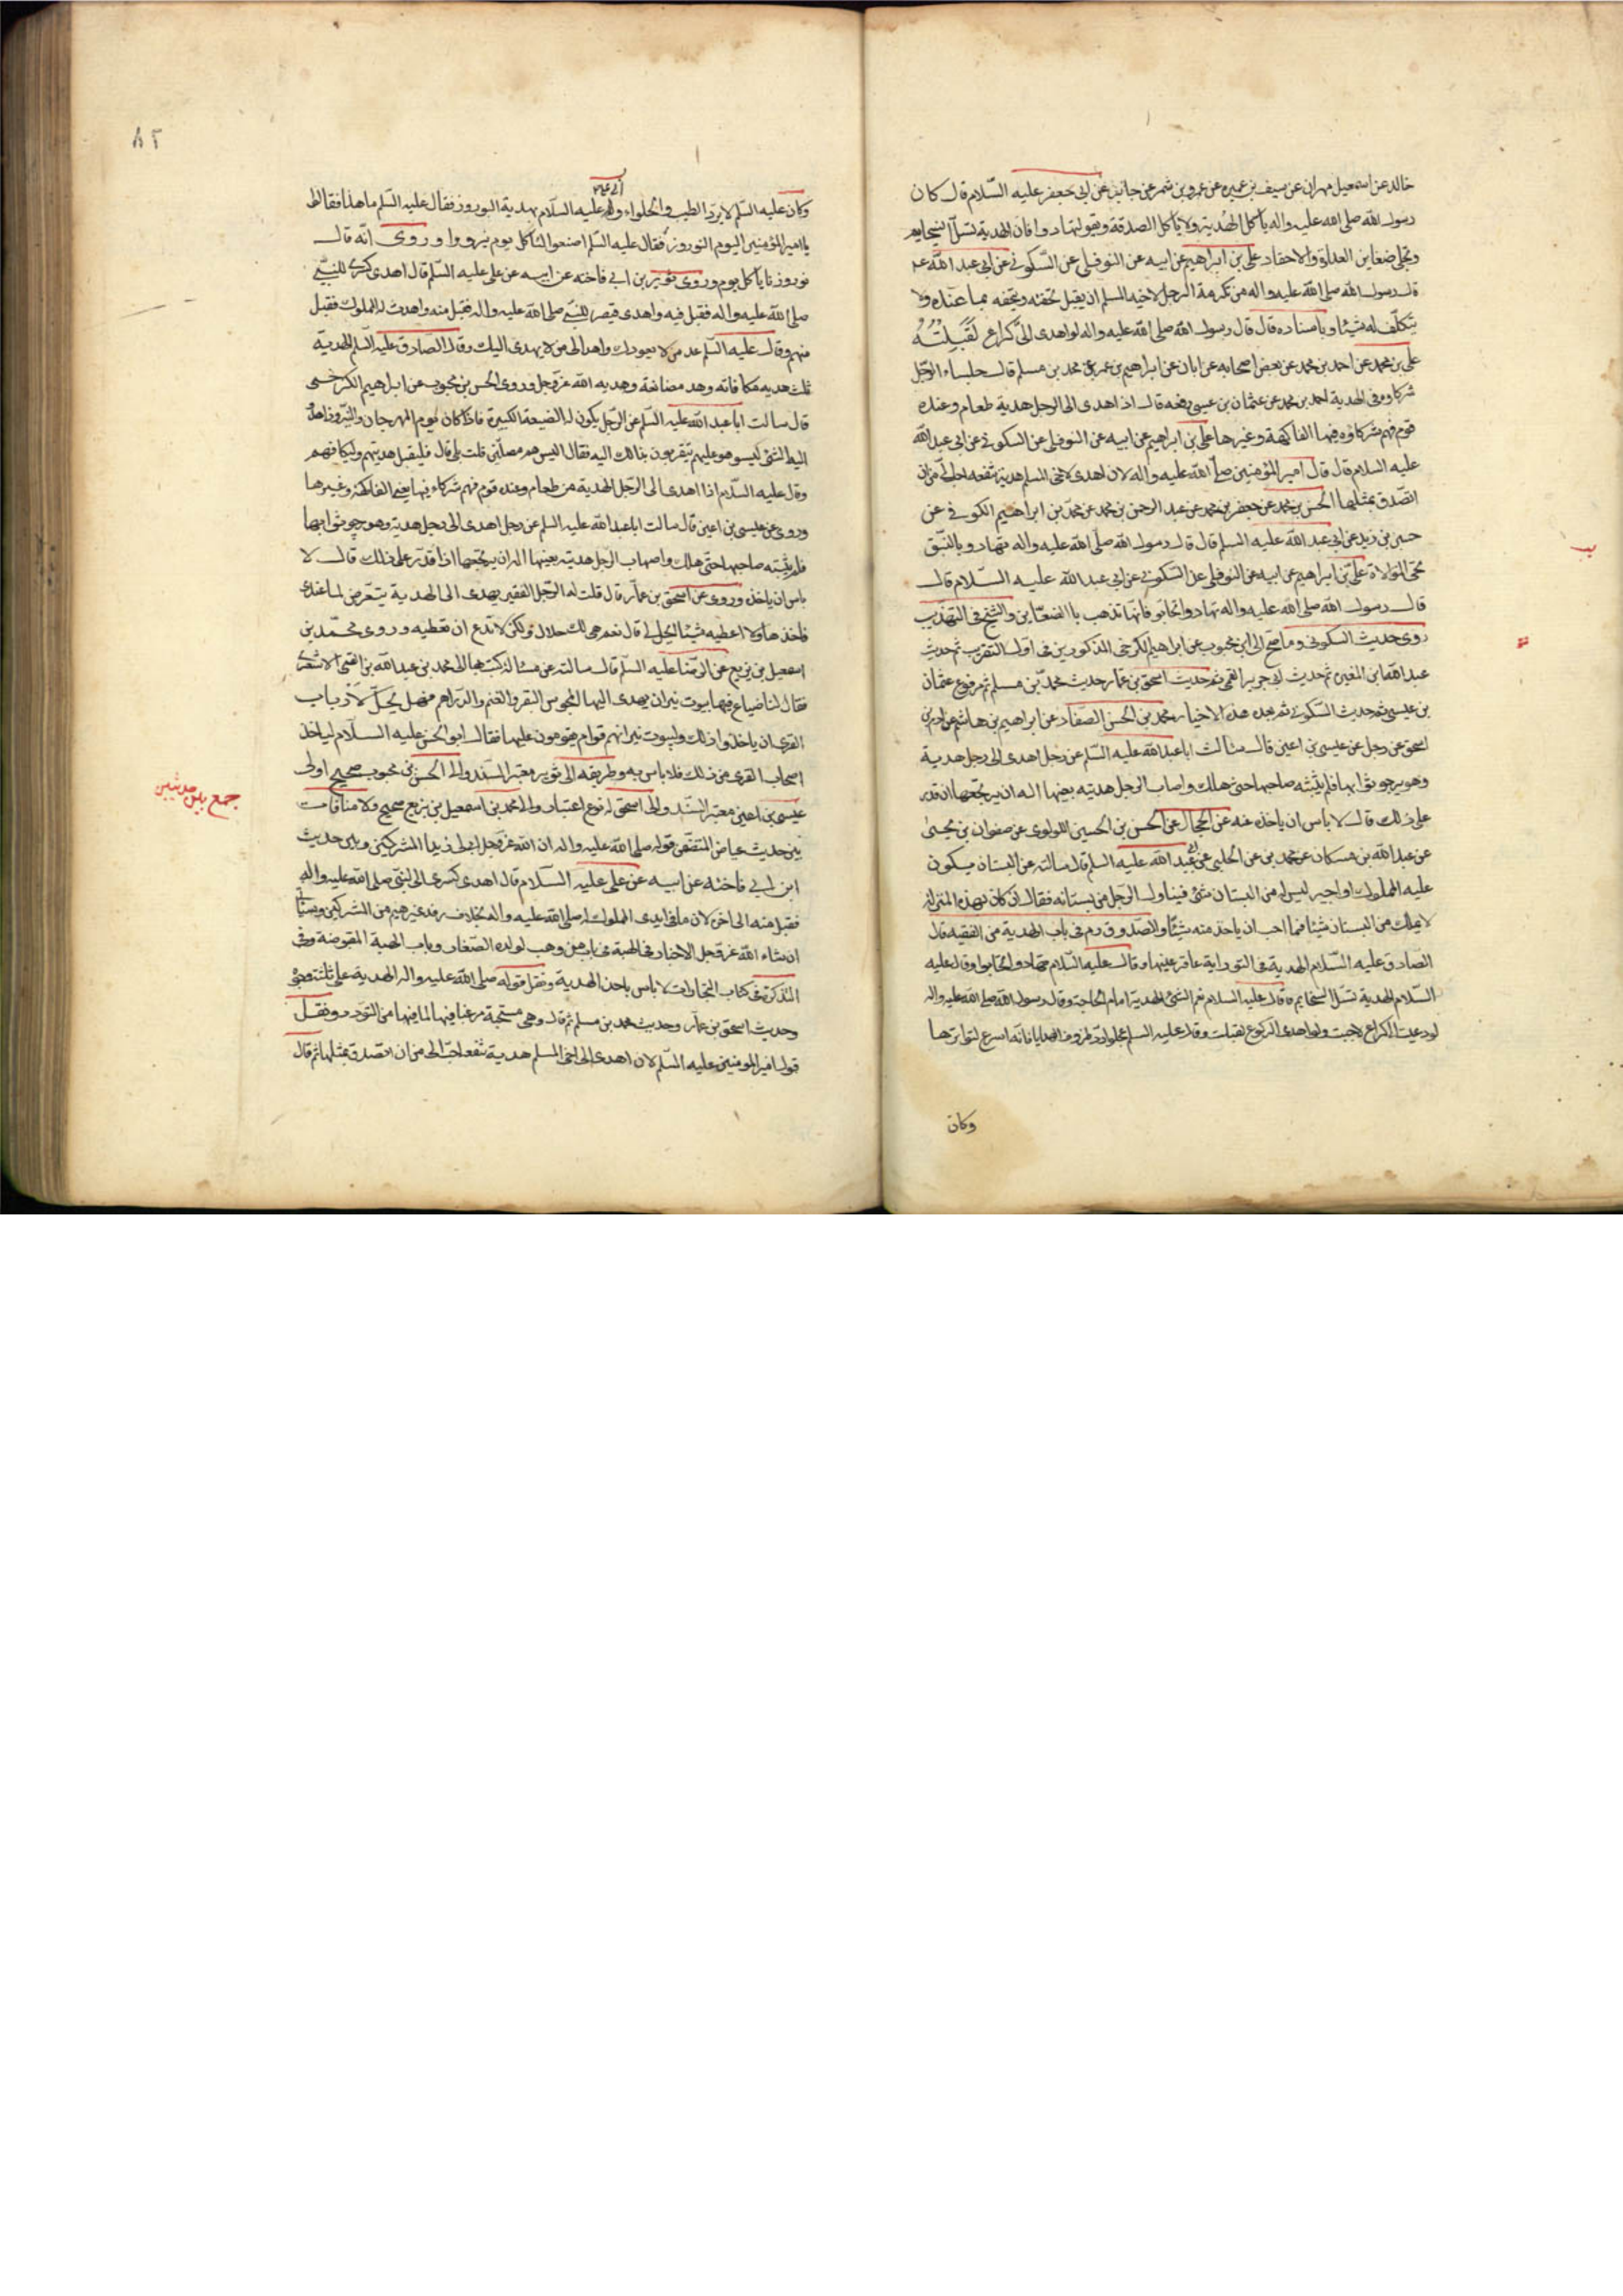 خالد عن اسمعيل مهران عن سيف بن عميره عن عمرو بن شمر عن جابر عن ابى جعفر عليه السّلام قال كان
رسول الله صلى الله عليه واله ياكل الهديّة ولا ياكل الصدقة ويقول تهادوا فان الهدية تسلّ السخايم
وتجلى ضغاين العداوة والاحقاد على بن ابراهيم عن ابيه عن النوفلى عن السّكونى عن ابى عبد الله عم
قال رسول الله صلى الله عليه واله من تكرمة الرجل لاخيه المسلم ان يقبل تحفته ويتحفه بما عنده ولا
يتكلّف له شيئا وباسناده قال قال رسول الله صلى الله عليه واله لو اهدى الىّ كراع لقبلته
على بن محمد عن احمد بن محمد عن بعض اصحابه عن ابان عن ابراهيم بن عمر عن محمد بن مسلم قال جلساء الرجل
شركاوه فى الهدية احمد بن محمد عن عثمان بن عيسى رفعه قال اذا اهدى الى الرجل هدية طعام وعنده
قوم فهم شركاؤه فيها الفاكهة وغيرها على بن ابراهيم عن ابيه عن النوفلى عن السكونى عن ابى عبد الله
عليه السلام قال قال امير المؤمنين صلّى الله عليه واله لان اهدى لاخى المسلم هدية تنفعه احب الىّ من ان
اتصّدق بمثلها الحسن بن محمد عن جعفر بن محمد عن عبد الرحمن بن محمد عن محمّد بن ابراهيم الكوفى عن
حسين بن زيد عن ابى عبد الله عليه السلم قال قال رسول الله صلّى الله عليه واله تهادو بالنّبق
تحى الموالاة على بن ابراهيم عن ابيه عن النوفلى عن السكونى عن ابى عبد الله عليه السّلام قال
قال رسول الله صلى الله عليه واله تهادوا تحابوا فانها تذهب باالضغاين والشيخ فى التهذيب
روى حديث السكونى وما صح الى ابن محبوب عن ابراهيم الكرخى المذكورين فى اول التقريب ثم حديث
عبد الله ابن المغيره ثم حديث ابى جرير القمى ثم حديث اسحق بن عمار حديث محمّد بن مسلم ثم مرفوع عثمان
بن عيسى ثم حديث السّكونى ثم بعد هذه الاخبار محمد بن الحسن الصّفار عن ابراهيم بن هاشم عن ادم بن
اسحق عن رجل عن عيسى بن اعين قال سئالت اباعبد الله عليه السّلم عن رجل اهدى الى رجل هدية
وهو يرجو ثوابها فلم يثبته صاحبها حتى هلك واصاب الرجل هديته بعينها اله ان يرتجعها ان قدر
على ذلك قال لا باس ان ياخذه عنه عن الحجال عن الحسن بن الحسين اللولوى عن صفوان بن يحيىٰ
عن عبد الله بن مسكان عن محمد بن عن الحلبى عن ابى عبد الله عليه السلم قال سالته عن البستان يكون
عليه المملوك او اجير ليس له من البستان شئ فيناول الرجل من بستانه فقال ان كان بهذه المنزلة
لا يملك من البستان شيئا فما احب ان ياخذ منه شيئا والصدوق ره فى باب الهدية من الفقيه قال
الصادق عليه السّلام الهدية فى التوراية عافر عينيها وقال عليه السّلام تهادوا تحابوا وقال عليه
السّلام الهدية تسلّ السخايم وقال عليه السلام نعم الشئ الهدية امام الحاجة وقال رسول الله صلى الله عليه واله
لو دعيت الى كراع لاجبت ولو اهدى الى كراع لقبلت وقال عليه السلم عجلوا رد ظروف الهدايا فانه اسرع لتواترها
وكان
٨٢
اتى على ع
وكان عليه السّلم لا يردّ الطيب والحلواء و عليه السلام بهدية النوروز فقال عليه السّلم ما هذا فقالوا
يا امير المؤمنين اليوم النوروز فقال عليه السّلم اصنعوا لنا كل يوم نيروزا وروى انّه قال
نوروزنا ياكل يوم وروى ثوير بن ابى فاخته عن ابيه عن على عليه السّلم قال اهدى كسرى للنبىّ
صلى الله عليه واله فقبل فيه واهدى قيصر للنبى صلى الله عليه واله فقبل منه واهدت له الملوك فقبل
منهم وقال عليه السّلم عد من لا يعودك واهد الى من لا يهدى اليك وقال الصّادق عليه السلم الهدية
ثلث هديه مكافاته وهد مصانعة وهديه الله عزّ وجل وروى الحسن بن محبوب عن ابراهيم الكرخى
قال سالت ابا عبد الله عليه السّلم عن الرّجل يكون له الضيعة الكبيره فاذا كان يوم المهرجان والنّيروز اهدو
اليه الشئ ليس هو عليهم يتقربون بذلك اليه فقال اليس هم مصلّين قلت بلى قال فليقبل هديتهم وليكافهم
وقال عليه السّلام اذا اهدى الى الرّجل الهدية من طعام وعنده قوم فهم شركاء فيها يعنى الفاكهة وغيرها
وروى عن عيسى بن اعين قال سالت ابا عبد الله عليه السلم عن رجل اهدى الى رجل هدية وهو يرجو ثوابها
فلم يثبته صاحبها حتّى هلك واصاب الرجل هديته بعينها اله ان يرتجعها اذا قدر على ذلك قال لا
باس ان ياخذه وروى عن اسحق بن عمار قال قلت له الرّجل الفقير يهدى الى الهدية يتعرّض لما عندى
فاخذها ولا اعطيه شيئا ايحلّ لى قال نعم هى لك حلال ولكن لا تدع ان تعطيه وروى محمّد بن
اسمعيل بن بزيع عن الرّضا عليه السلم قال سالته عن مسئلة كتب بها الى محمد بن عبد الله بن القمى الاشعرى
فقال لنا ضياع فيها بيوت نيران يهدى اليها المجوس البقر والغنم والدّراهم فهل يحلّ لارباب
القرى ان ياخذوا ذلك ولبيوت نيرانهم قوام يقومون عليها فقال ابو الحسن عليه السلام لياخذ
اصحاب القرى من ذلك فلا باس به وطريقه الى ثوير معتبر السّند والى الحسن بن محبوب صحيح اولى
عيسى بن اعين معتبر السّند والى اسحق له نوع اعتبار والى محمد بن اسمعيل بن بزيع صحيح ولا منافات
بين حديث عياض المتضمن قوله صلى الله عليه واله ان الله عزّ وجل ابى لى زبد المشركين وبين حديث
ابن ابى فاخته عن ابيه عن على عليه السلام قال اهدى كسرى الى النبى صلى الله عليه واله
فقبل منه الى اخره لان ما فى ايدى الملوك له صلى الله عليه واله بخلاف رفد غيرهم من المشركين وسياتى
ان شاء الله عزّ وجل الاخبار فى الهبة فى باب من وهب لولده الصّغار وباب الهبة المقبوضة وفى
التذكرة فى كتاب التجارات لا باس باخذ الهدية ونقل قوله صلى الله عليه واله الهدية على ثلثة وجوه
وحديث اسحق بن عمار وحديث محمد بن مسلم ثم قال وهى مستحبة مرغبا فيها لما فيها من التودد ونقل
قول امير المومنين عليه السّلم لان اهدى الى اخى المسلم هدية تنفعه احبّ الى من ان اتصدق بمثلها ثم قال
جمع بين حديثين